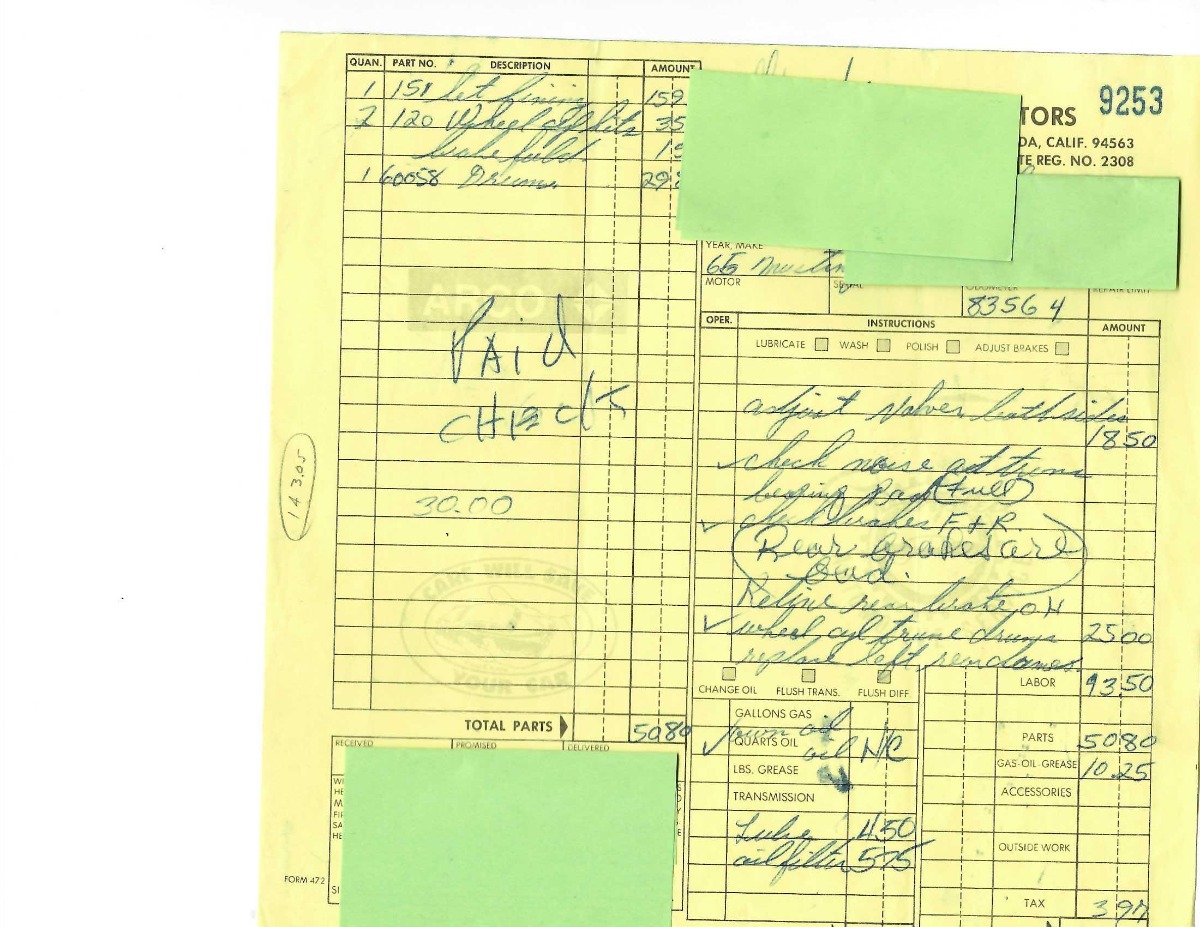 QUAN. PART NO. DESCRIPTION AMOUNT
1 151 set lining 159
2 120 Wheel cyl kits 35
brake fluid 15
1 60058 Drum 29
ARCO
PAID
CHECK
30.00
143.05
CARE WILL SAVE
YOUR CAR
TOTAL PARTS 5080
RECEIVED PROMISED DELIVERED
FORM 472
9253
TORS
DA, CALIF. 94563
TE REG. NO. 2308
YEAR, MAKE
65 Mustan
MOTOR SERIAL ODOMETER REPAIR LIMIT
83564
OPER. INSTRUCTIONS AMOUNT
LUBRICATE WASH POLISH ADJUST BRAKES
adjust valves both sides
1850
check noise
check brakes F + R
Rear brakes are
Bad.
Reline rear brake, OH
wheel cyl drums 2500
replace left rear
CHANGE OIL FLUSH TRANS. FLUSH DIFF.
LABOR 93.50
GALLONS GAS
own oil
QUARTS OIL oil N/C
PARTS 5080
LBS. GREASE
GAS-OIL-GREASE 10.25
TRANSMISSION
ACCESSORIES
Lube 450
oil filter 575
OUTSIDE WORK
TAX 397